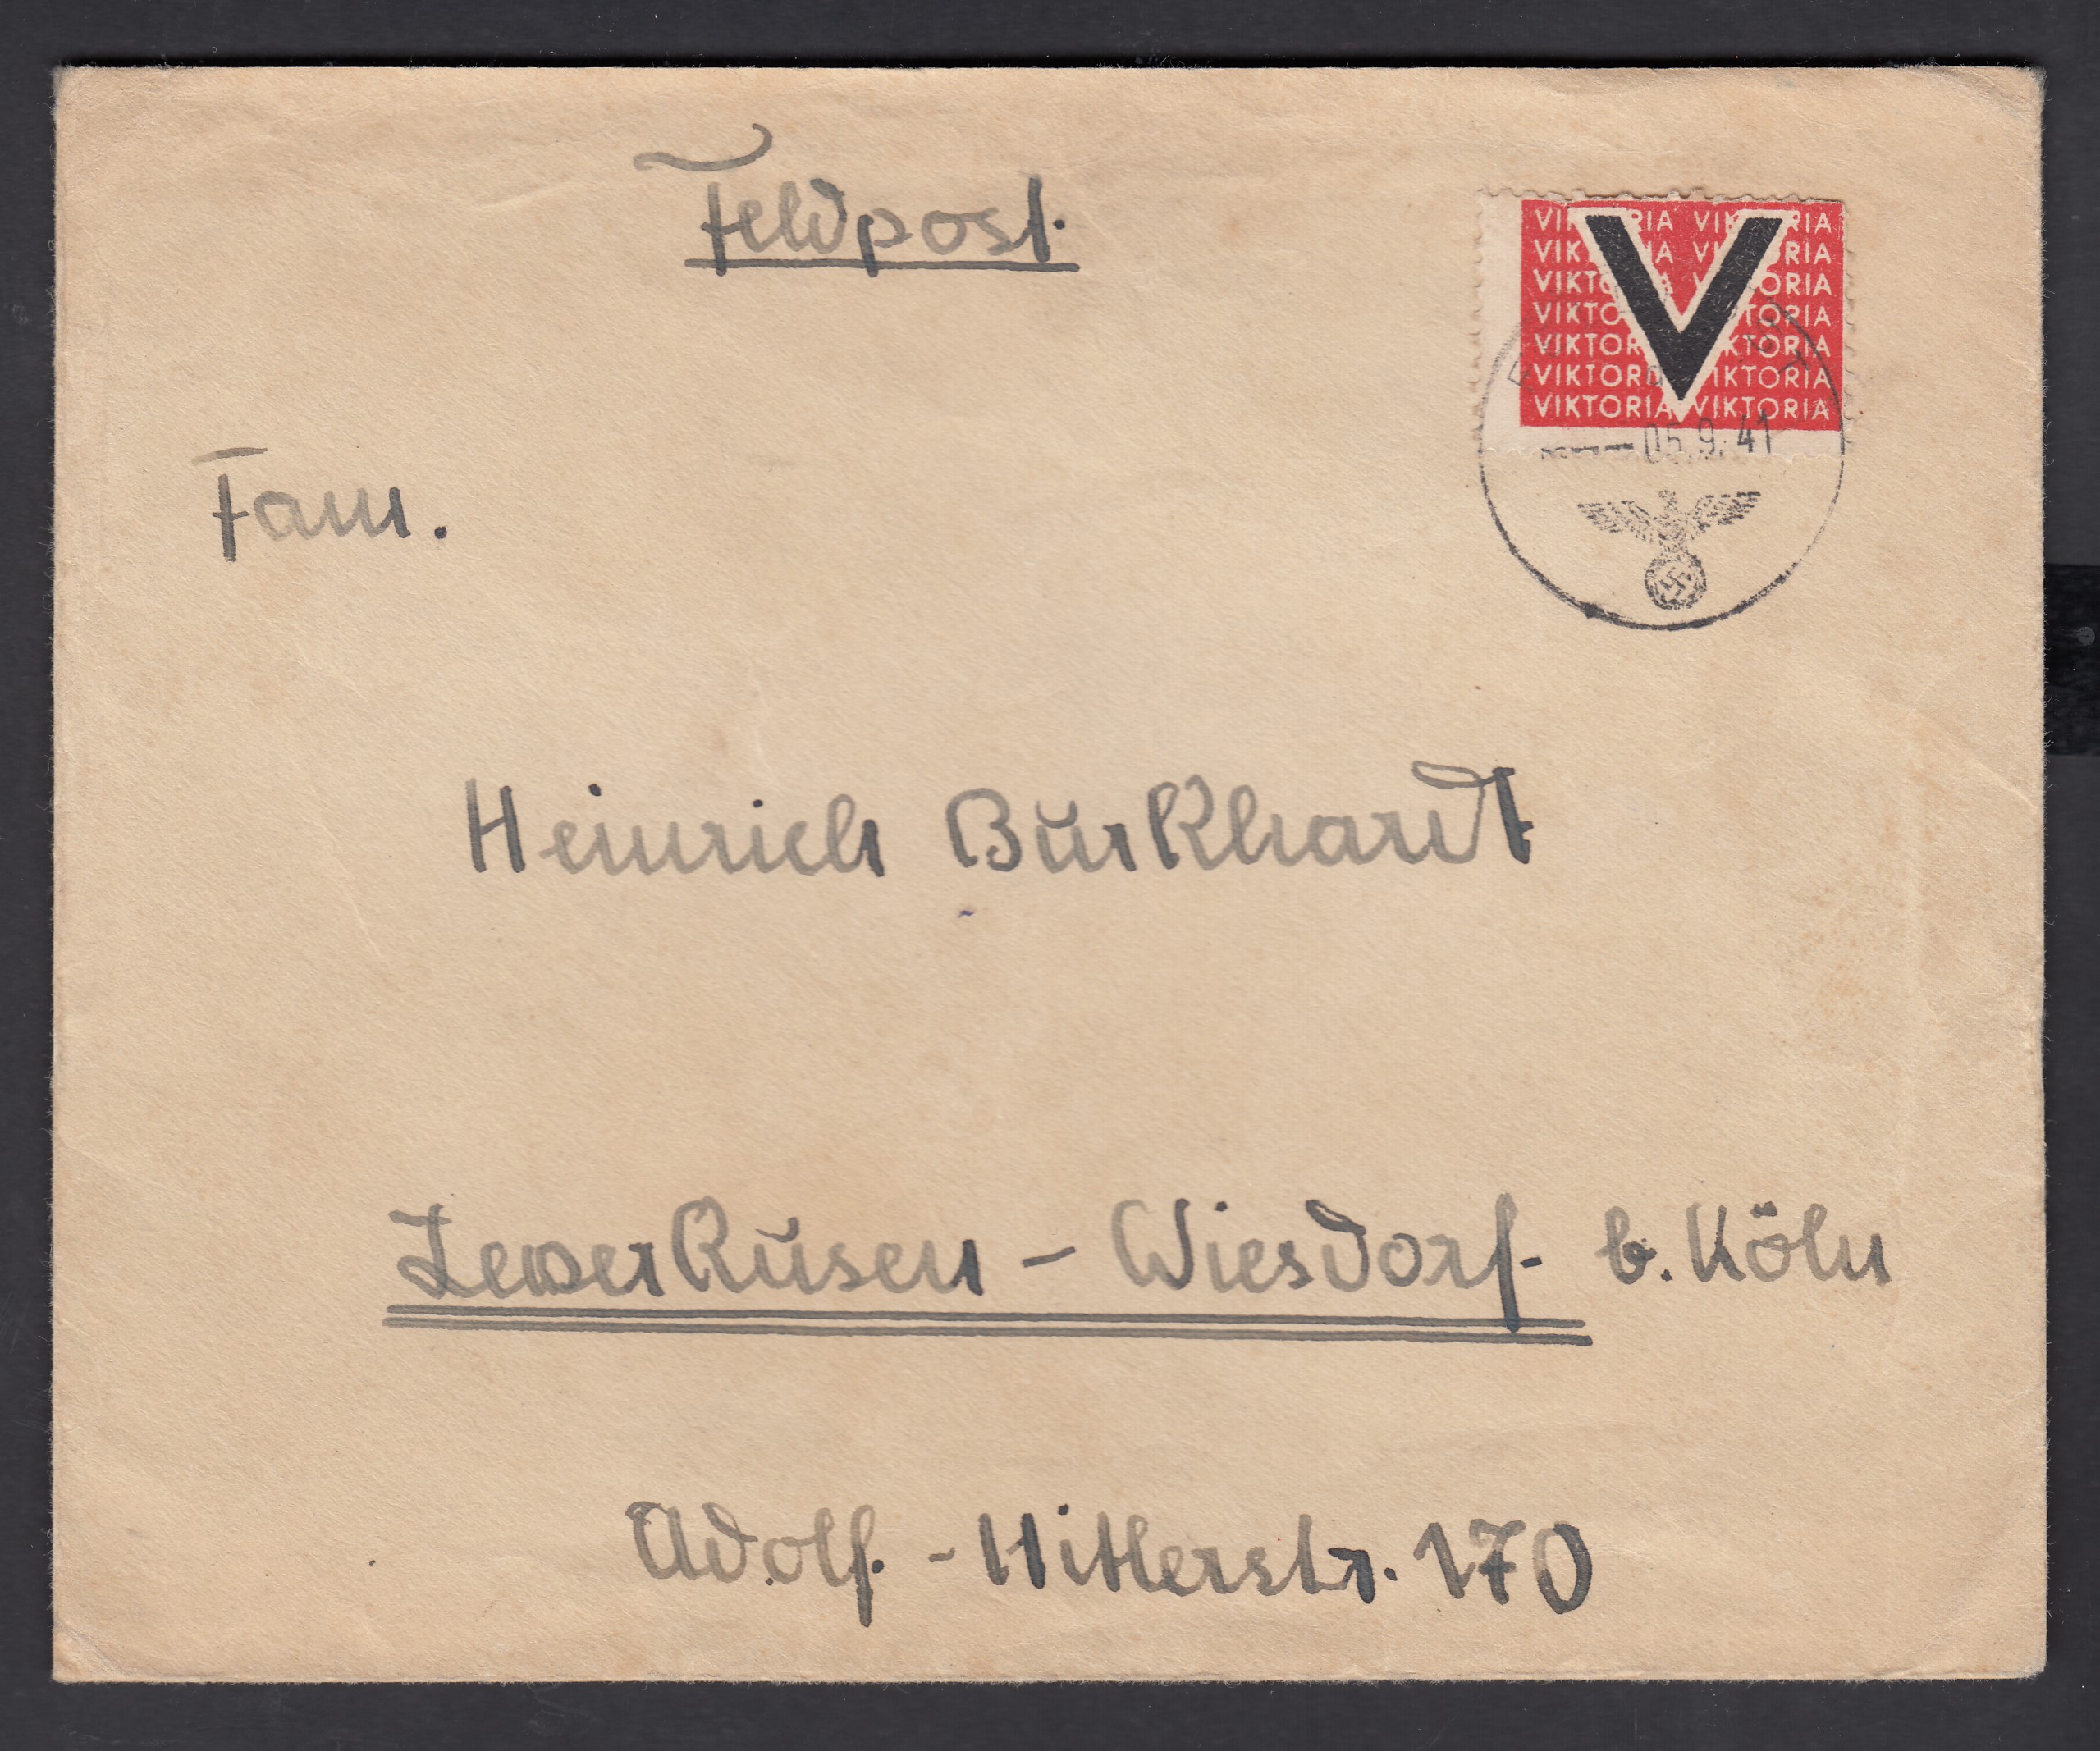 Feldpost.
VIKTORIA VIKTORIA
VIKTORIA VIKTORIA
VIKTORIA VIKTORIA
VIKTORIA VIKTORIA
VIKTORIA VIKTORIA
VIKTORIA VIKTORIA
VIKTORIA VIKTORIA
V
05.9.41
Fam.
Heinrich Burkhardt
Leverkusen - Wiesdorf b. Köln
Adolf - Hitlerstr. 170